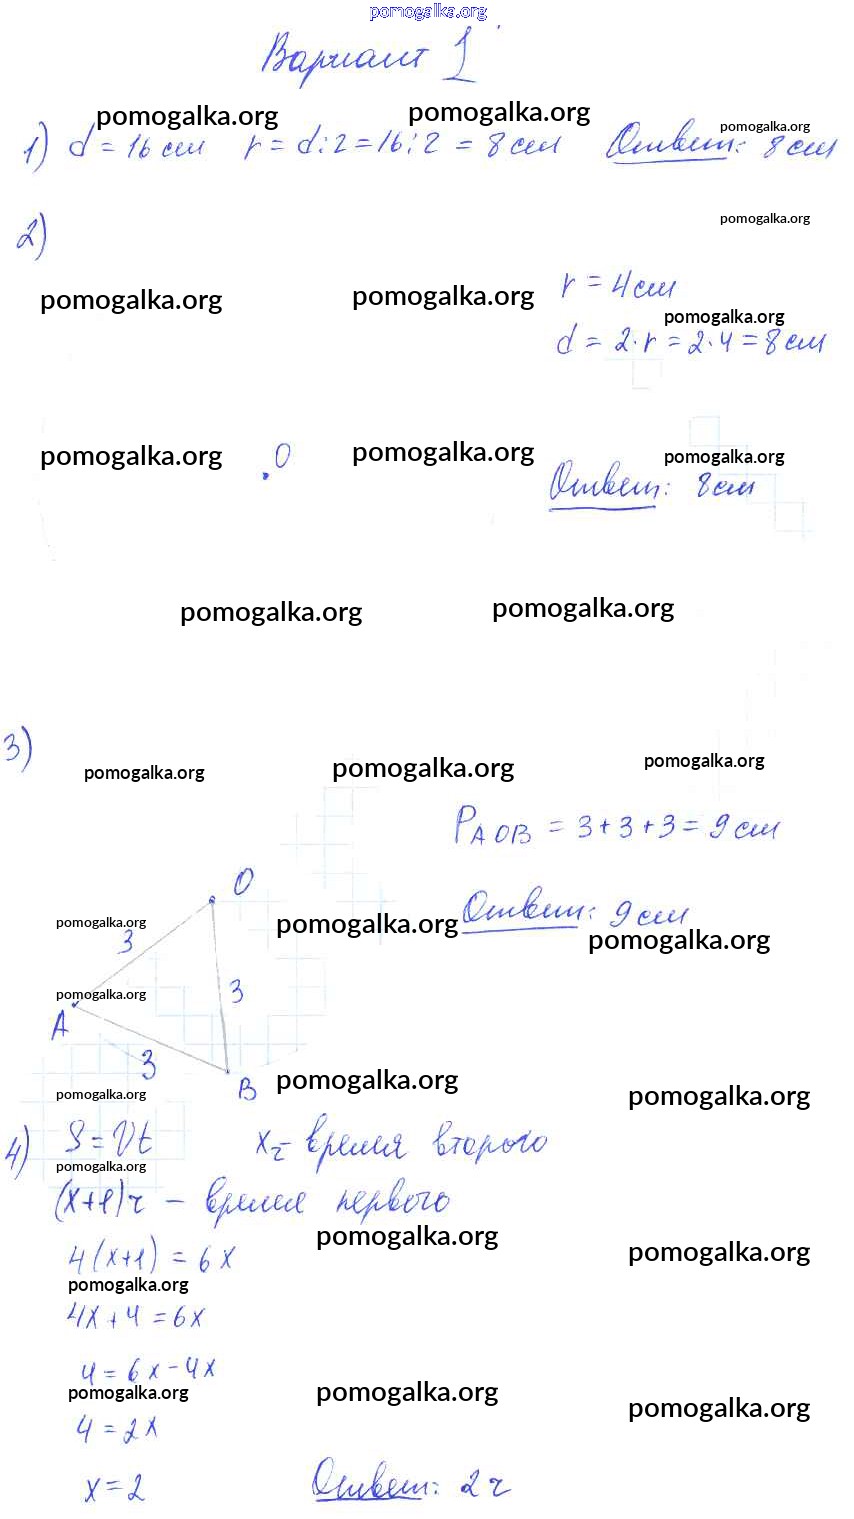 pomogalka.org
Вариант 1
pomogalka.org pomogalka.org pomogalka.org
1) d = 16 см r = d:2 = 16:2 = 8 см Ответ: 8 см
pomogalka.org
2)
r = 4 см
pomogalka.org pomogalka.org
pomogalka.org
d = 2·r = 2·4 = 8 см
pomogalka.org O pomogalka.org pomogalka.org
Ответ: 8 см
pomogalka.org pomogalka.org
3)
pomogalka.org pomogalka.org pomogalka.org
P AOB = 3+3+3 = 9 см
O
Ответ: 9 см
pomogalka.org pomogalka.org pomogalka.org
3
3
pomogalka.org
A
3
B
pomogalka.org pomogalka.org
pomogalka.org
4) S = Vt x ч - время второго
pomogalka.org
(x+1)ч - время первого
pomogalka.org pomogalka.org
4(x+1) = 6x
pomogalka.org
4x+4 = 6x
4 = 6x-4x
pomogalka.org pomogalka.org pomogalka.org
4 = 2x
x = 2 Ответ: 2 ч